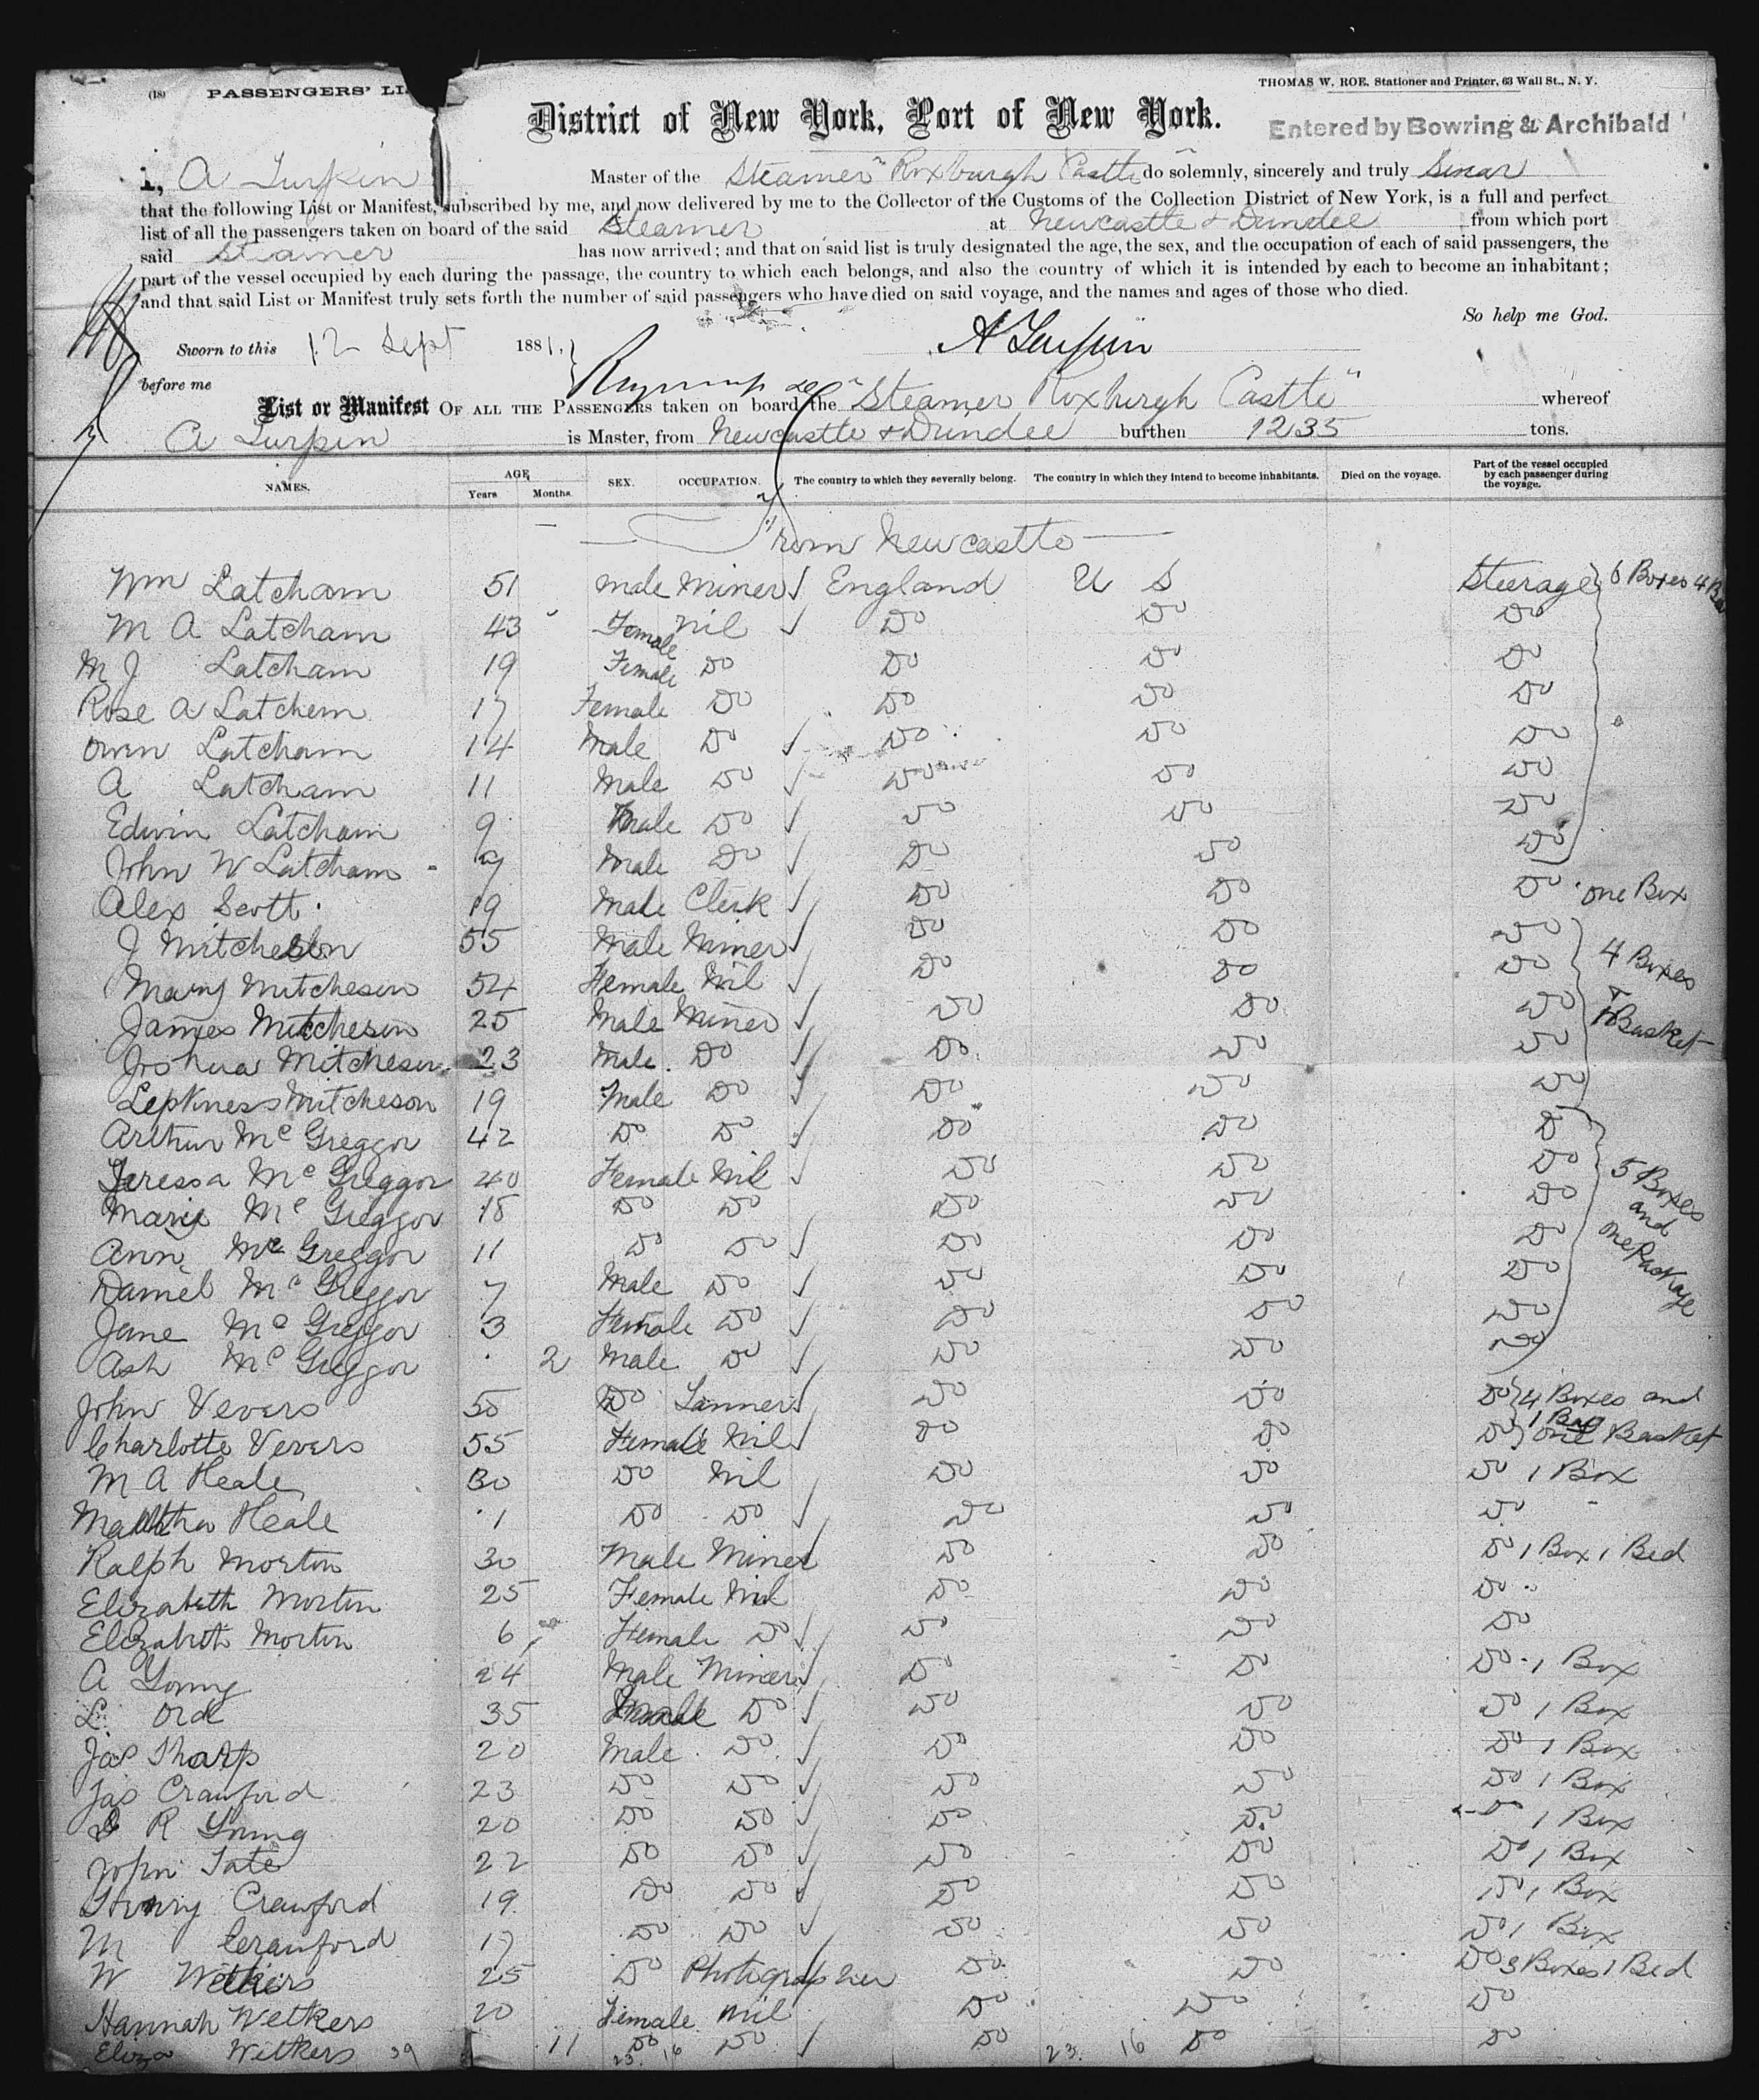 (18) PASSENGERS' LI
THOMAS W. ROE, Stationer and Printer, 63 Wall St., N. Y.
District of New York, Port of New York.
Entered by Bowring & Archibald
I, A Turpin Master of the Steamer "Roxburgh Castle" do solemnly, sincerely and truly Swear
that the following List or Manifest, subscribed by me, and now delivered by me to the Collector of the Customs of the Collection District of New York, is a full and perfect
list of all the passengers taken on board of the said Steamer at Newcastle & Dundee from which port
said Steamer has now arrived; and that on said list is truly designated the age, the sex, and the occupation of each of said passengers, the
part of the vessel occupied by each during the passage, the country to which each belongs, and also the country of which it is intended by each to become an inhabitant;
and that said List or Manifest truly sets forth the number of said passengers who have died on said voyage, and the names and ages of those who died.
So help me God.
Sworn to this 12 Sept 1881, A Turpin
before me
List or Manifest OF ALL THE PASSENGERS taken on board the "Steamer Roxburgh Castle" whereof
A Turpin is Master, from Newcastle & Dundee burthen 1235 tons.
NAMES. AGE Years Months. SEX. OCCUPATION. The country to which they severally belong. The country in which they intend to become inhabitants. Died on the voyage. Part of the vessel occupied by each passenger during the voyage.
From Newcastle
Wm Latcham 51 male Miner England U S Steerage 6 Boxes 4
M A Latcham 43 Female Nil Do Do Do
M J Latcham 19 Female Do Do Do Do
Rose A Latchem 17 Female Do Do Do Do
Owen Latcham 14 Male Do Do Do Do
A Latcham 11 Male Do Do Do Do
Edwin Latcham 9 Male Do Do Do Do
John W Latcham 7 Male Do Do Do Do
Alex Scott 19 Male Clerk Do Do Do one Box
J Mitcheson 55 Male Miner Do Do Do
Mary Mitcheson 54 Female Nil Do Do Do 4 Boxes
James Mitcheson 25 Male Miner Do Do Do Basket
Joshua Mitcheson 23 Male Do Do Do Do
Mitcheson 19 Male Do Do Do Do
Arthur Mc Greggor 42 Do Do Do Do D
Teressa Mc Greggor 40 Female Nil Do Do Do 5 Boxes
Mary Mc Greggor 18 Do Do Do Do Do and
Ann Mc Greggor 11 Do Do Do Do Do one Package
Daniel Mc Greggor 7 Male Do Do Do Do
Jane Mc Greggor 3 Female Do Do Do Do
Ash Mc Greggor 2 Male Do Do Do Do
John Vevers 50 Do Tanner Do Do Do 4 Boxes and
1 Bag
Charlotte Vevers 55 Female Nil Do Do Do one Basket
M A Heale 30 Do Nil Do Do Do 1 Box
Martha Heale 1 Do Do Do Do Do
Ralph Morton 30 Male Miner Do Do Do 1 Box 1 Bed
Elizabeth Morton 25 Female Nil Do Do Do
Elizabeth Morton 6 Female Do Do Do Do
A Young 24 Male Miner Do Do Do 1 Box
L Ord 35 Male Do Do Do Do 1 Box
Jas Tharp 20 Male Do Do Do Do 1 Box
Jas Crawford 23 Do Do Do Do Do 1 Box
R Young 20 Do Do Do Do Do 1 Box
John Tate 22 Do Do Do Do Do 1 Box
Henry Crawford 19 Do Do Do Do Do 1 Box
M Crawford 17 Do Do Do Do Do 1 Box
W Wetkers 25 Do Photographer Do Do Do 3 Boxes 1 Bed
Hannah Wetkers 20 Female Nil Do Do Do
Eliza Wetkers 39 11 Do Do Do Do Do
23 16 23. 16